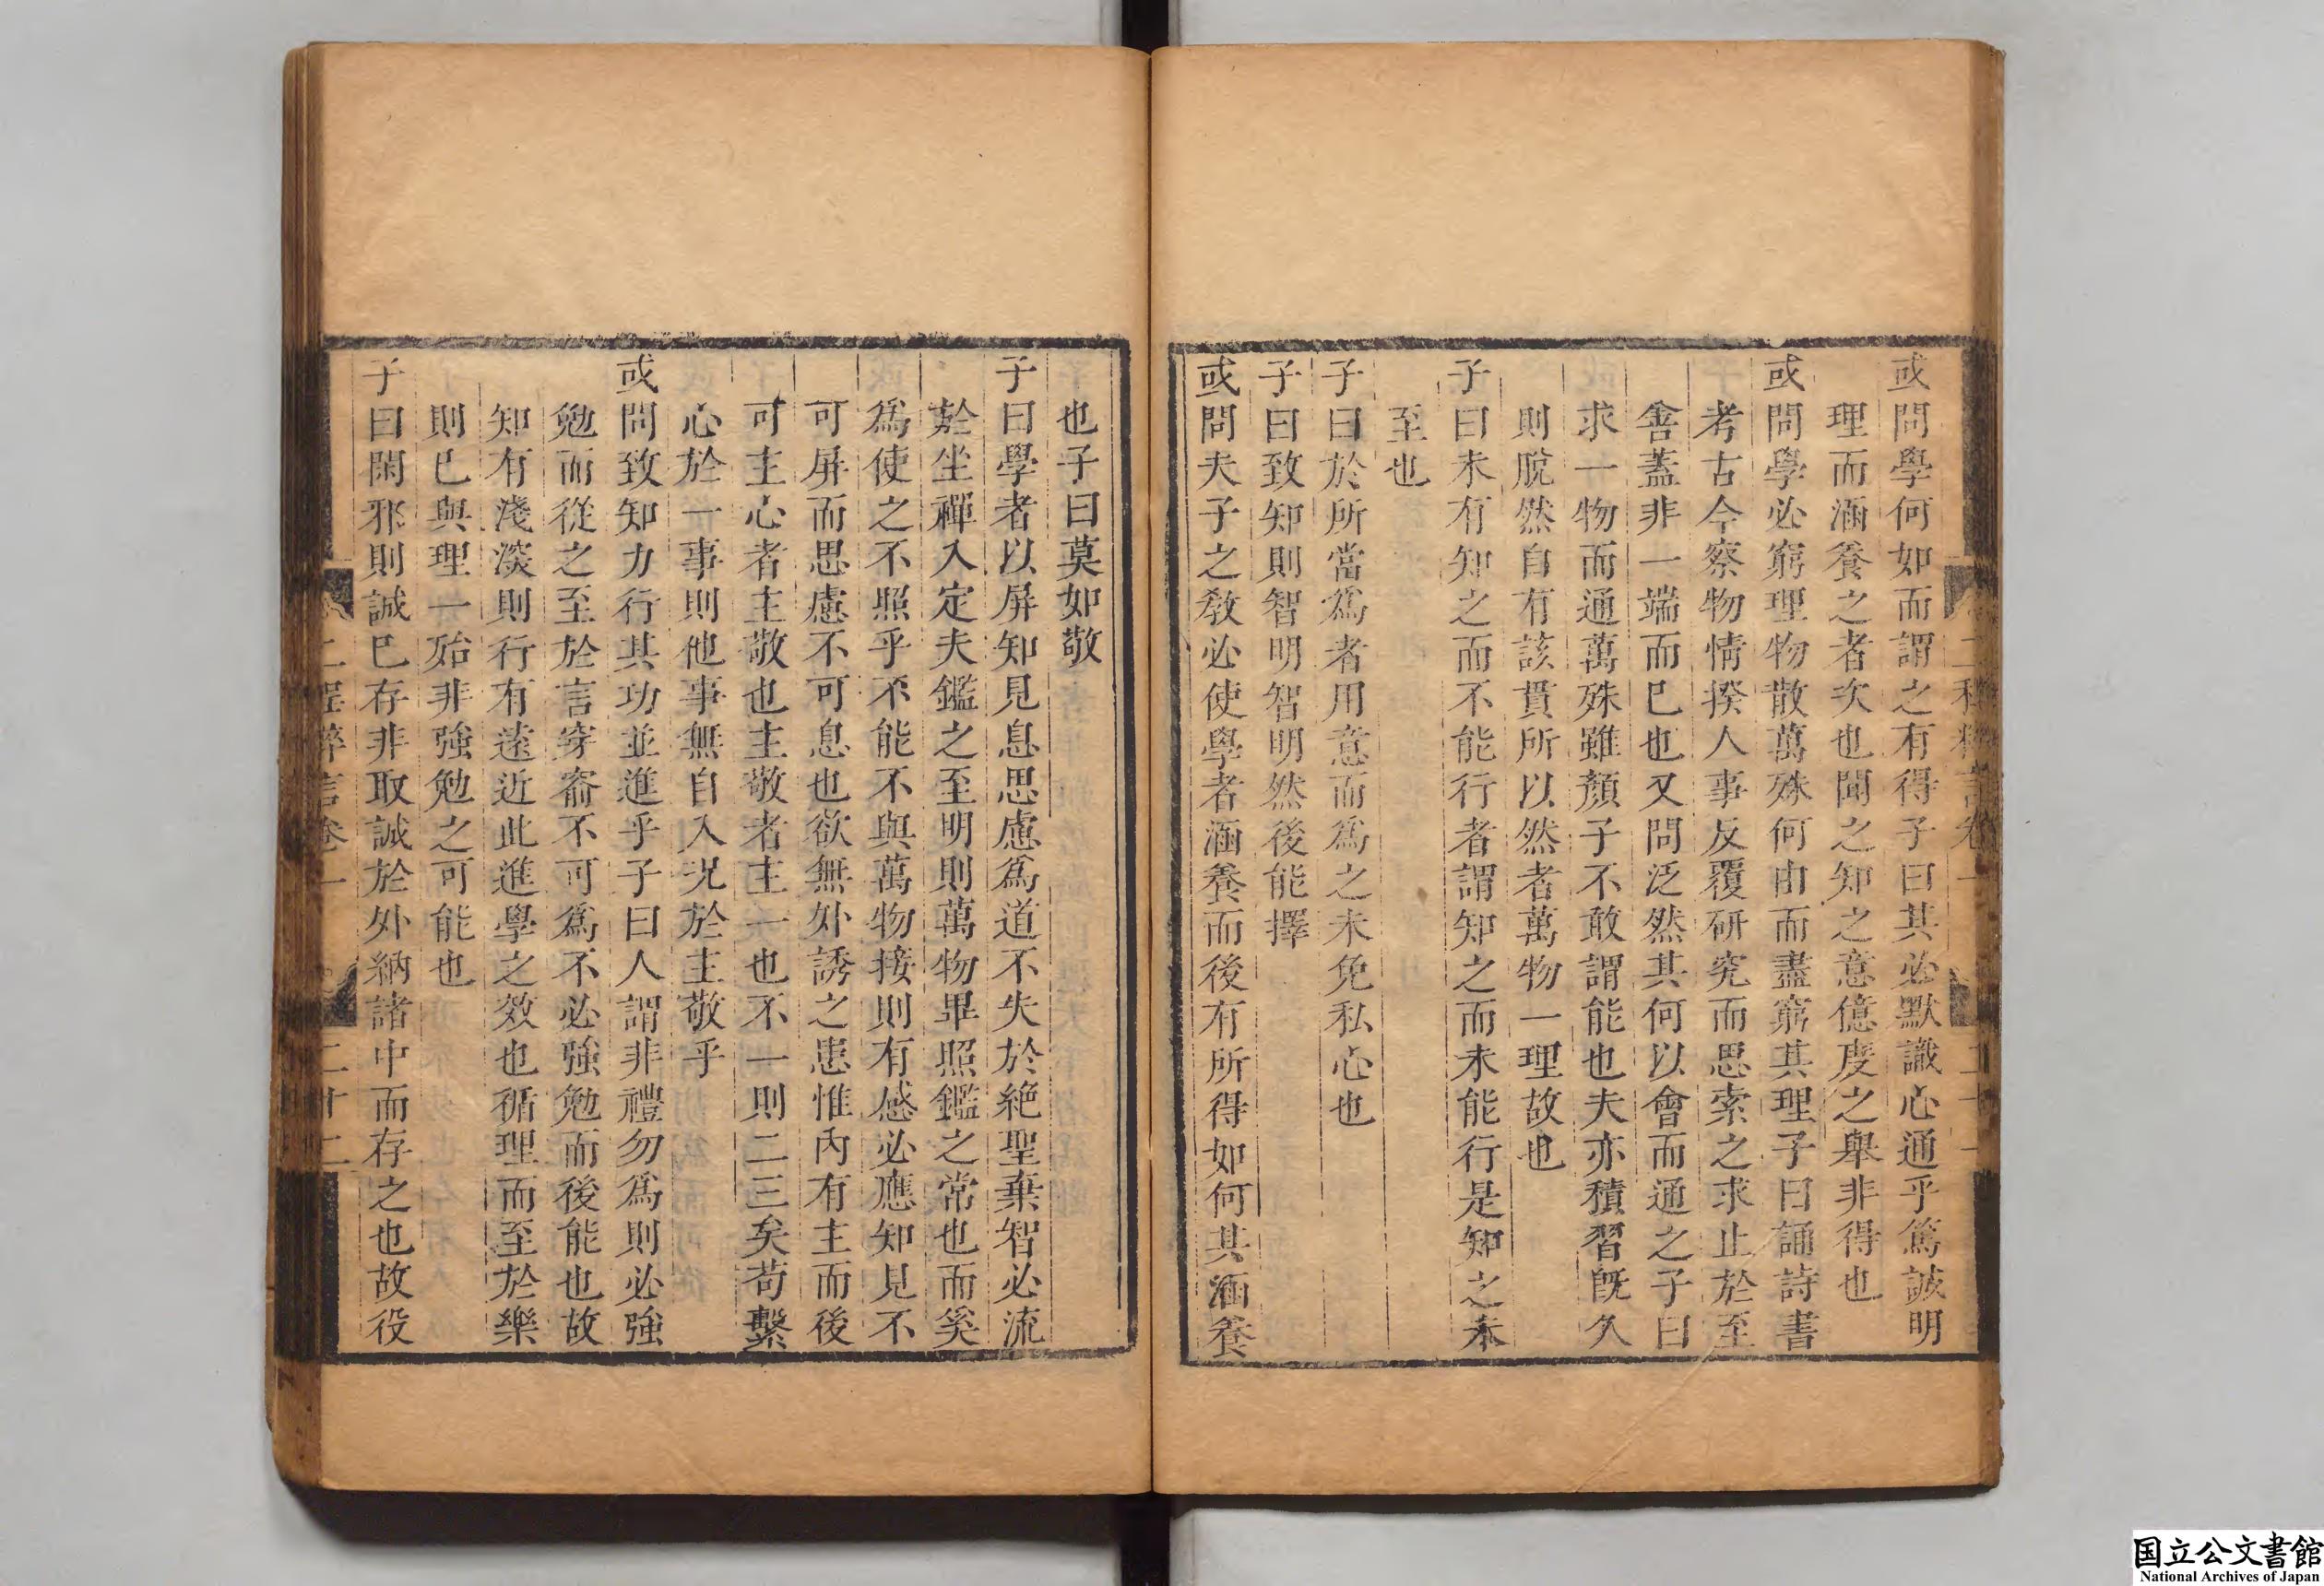 或問學何如而謂之有得子曰其必默識心通乎篤誠明
理而涵養之者次也聞之知之意億度之舉非得也
或問學必窮理物散萬殊何由而盡窮其理子曰誦詩書
考古今察物情揆人事反覆研究而思索之求止於至
善蓋非一端而已也又問泛然其何以會而通之子曰
求一物而通萬殊雖顏子不敢謂能也夫亦積習旣久
則脫然自有該貫所以然者萬物一理故也
子曰未有知之而不能行者謂知之而未能行是知之未
至也
子曰於所當爲者用意而爲之未免私心也
子曰致知則智明智明然後能擇
或問夫子之敎必使學者涵養而後有所得如何其涵養
也子曰莫如敬
子曰學者以屏知見息思慮爲道不失於絶聖棄智必流
於坐禪入定夫鑑之至明則萬物畢照鑑之常也而奚
爲使之不照乎不能不與萬物接則有感必應知見不
可屏而思慮不可息也欲無外誘之患惟內有主而後
可主心者主敬也主敬者主一也不一則二三矣苟繫
心於一事則他事無自入况於主敬乎
或問致知力行其功並進乎子曰人謂非禮勿爲則必強
勉而從之至於言穿窬不可爲不必強勉而後能也故
知有淺深則行有遠近此進學之效也循理而至於樂
則已與理一殆非強勉之可能也
子曰閑邪則誠已存非取誠於外納諸中而存之也故役
二程粹言卷一
二十二
国立公文書館
National Archives of Japan